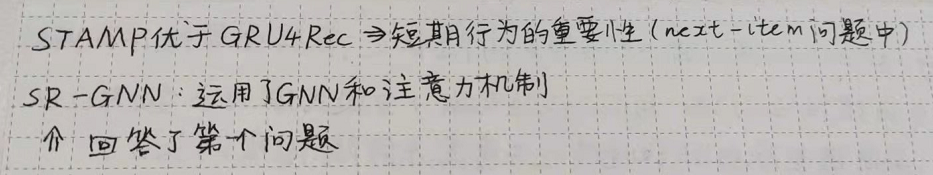 STAMP优于GRU4Rec⇒短期行为的重要性(next-item问题中)
SR-GNN:运用了GNN和注意力机制
⇑ 回答了第个问题